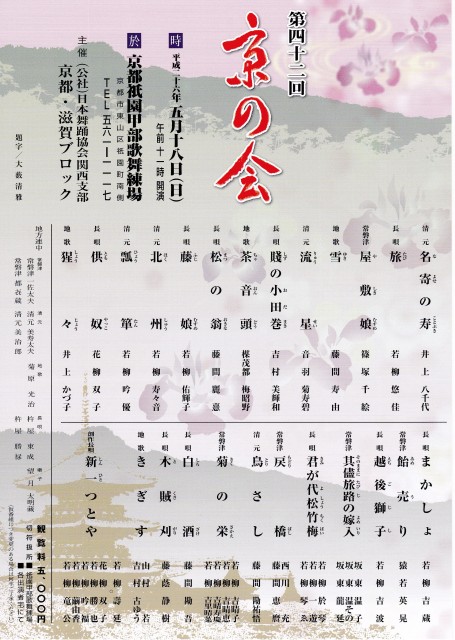 第四十二回
京の会
時 平成二十六年 五月十八日(日)
午前十一時 開演
於 京都祇園甲部歌舞練場
京都市東山区祇園町南側
TEL 五六一-一一一七
主催 (公社)日本舞踊協会関西支部
京都・滋賀ブロック
題字/大薮清雅
清元 名寄の寿 井上八千代
長唄 旅 若柳悠佳
常磐津 屋敷娘 篠塚千絵
地歌 雪 藤間寿由
清元 流星 音羽菊寿碧
長唄 賤の小田巻 吉村美輝和
地歌 茶音頭 楳茂都梅昭野
長唄 松の翁 藤間麗恵
長唄 藤娘 若柳佑輝子
清元 北州 若柳寿々音
清元 瓢箪 若柳吟優
長唄 供奴 花柳双子
地歌 猩々 井上かづ子
長唄 まかしょ 若柳吉蔵
常磐津 飴売り 猿若英晃
長唄 越後獅子 若柳吉波
常磐津 其儘旅路の嫁入 坂東温子
長唄 君が代松竹梅
常磐津 戻橋 西川充
藤間恵雁
清元 鳥さし 藤間勘祐悟
常磐津 菊の栄
長唄 白酒 藤間勘吾
長唄 木賊刈 藤蔭静樹
地歌 きぎす 山村若有子
吉村古ゆう
創作長唄 新一つとや 若柳壽延
花柳双子
地方連中
常磐津 常磐津一佐太夫
常磐津都㐂蔵
清元 清元美寿太夫
清元美治郎
地歌 菊原光治
長唄 杵屋東成
杵屋勝禄
囃子 望月太明蔵
観覧料 五、〇〇〇円
切符扱所
■祇園甲部歌舞練場
■各出演者宅にて